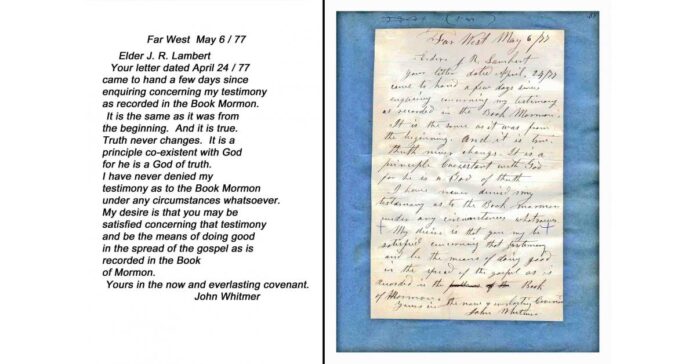 Far West May 6 / 77
Elder J. R. Lambert
Your letter dated April 24 / 77
came to hand a few days since
enquiring concerning my testimony
as recorded in the Book Mormon.
It is the same as it was from
the beginning. And it is true.
Truth never changes. It is a
principle co-existent with God
for he is a God of truth.
I have never denied my
testimony as to the Book Mormon
under any circumstances whatsoever.
My desire is that you may be
satisfied concerning that testimony
and be the means of doing good
in the spread of the gospel as is
recorded in the Book
of Mormon.
Yours in the now and everlasting covenant.
John Whitmer
Far West May 6/77
J R Lambert
your letter dated April, 24/77
came to hand a few days since
enquiring concerning my testimony
as recorded in the Book Mormon.
It is the same as it was from
the beginning. And it is true.
truth never change. It is a
principle Coexistent with God
for he is a God of truth
I have never denied my
testimony as to the Book Mormon
under any circumstances whatsoever
My desire is that you may be
satisfied concerning that testimony
and be the means of doing good
in the spread of the gospel as is
Recorded in the Book
of Mormon.
Yours in the now &
John Whitmer